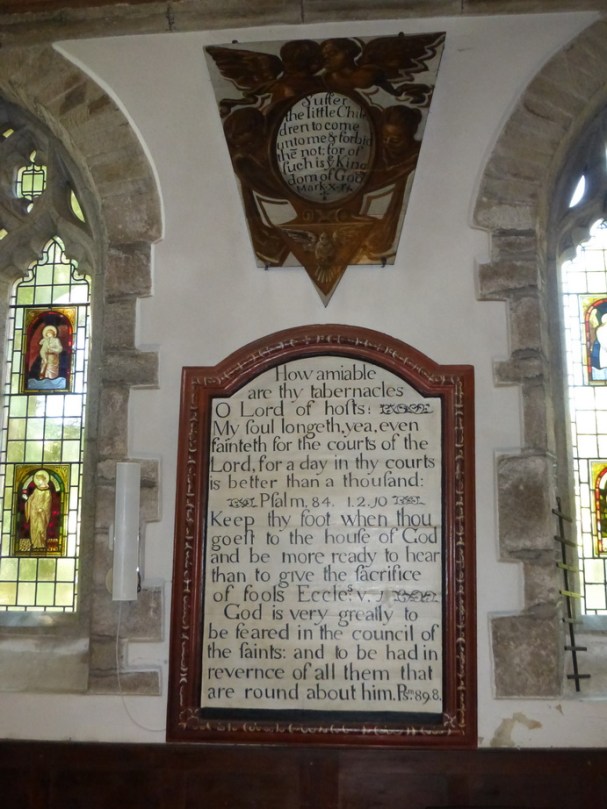 Suffer
the little Chil
dren to come
unto me & forbid
thē not: for of
such is yͤ King
dom of God
Mark X.14.
How amiable
are thy tabernacles
O Lord of hoſts:
My ſoul longeth, yea, even
fainteth for the courts of the
Lord, for a day in thy courts
is better than a thouſand:
Pſalm. 84. 1.2.10
Keep thy foot when thou
goeſt to the houſe of God
and be more ready to hear
than to give the ſacrifice
of fools Eccleˢ. v. 1
God is very greatly to
be feared in the council of
the ſaints: and to be had in
revernce of all them that
are round about him. Pſ. 89 8.